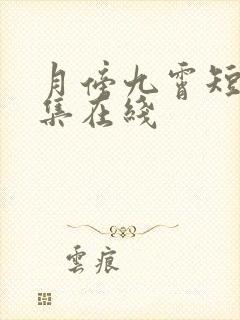 月傍九霄短
集在綫
雲痕